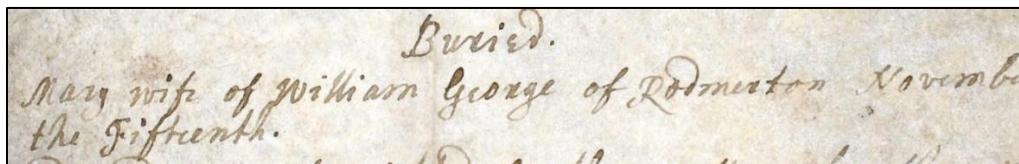 Buried.
Mary wife of William George of Rodmerton Novembe
the Fifteenth.